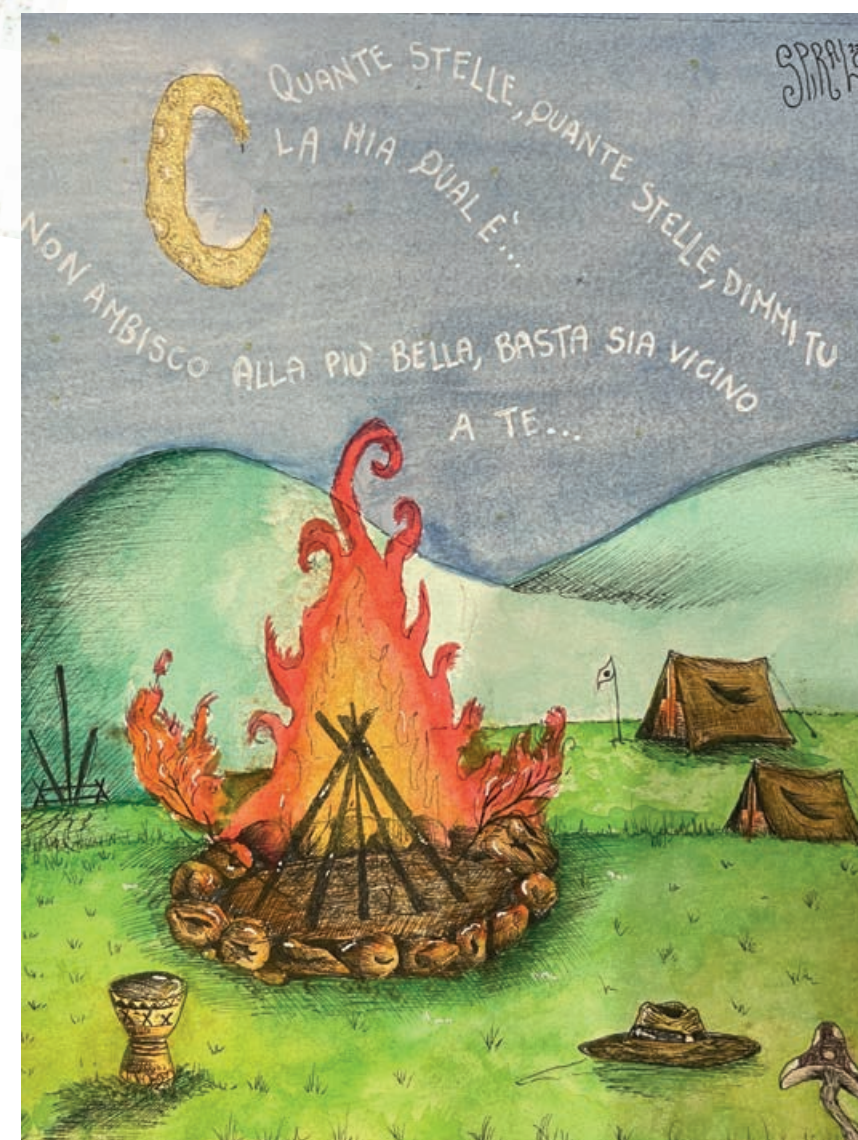 QUANTE STELLE, QUANTE STELLE, DIMMI TU
LA MIA QUAL È...
NON AMBISCO ALLA PIÙ BELLA, BASTA SIA VICINO
A TE...